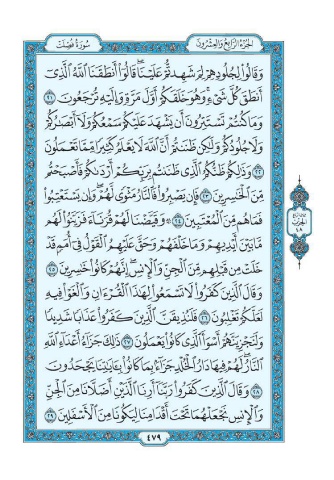 الجزء الرابع والعشرون
سورة فصلت
وَقَالُوا۟ لِجُلُودِهِمْ لِمَ شَهِدتُّمْ عَلَيْنَا ۖ قَالُوٓا۟ أَنطَقَنَا ٱللَّهُ ٱلَّذِىٓ
أَنطَقَ كُلَّ شَىْءٍ وَهُوَ خَلَقَكُمْ أَوَّلَ مَرَّةٍ وَإِلَيْهِ تُرْجَعُونَ ٢١
وَمَا كُنتُمْ تَسْتَتِرُونَ أَن يَشْهَدَ عَلَيْكُمْ سَمْعُكُمْ وَلَآ أَبْصَٰرُكُمْ
وَلَا جُلُودُكُمْ وَلَٰكِن ظَنَنتُمْ أَنَّ ٱللَّهَ لَا يَعْلَمُ كَثِيرًا مِّمَّا تَعْمَلُونَ
٢٢ وَذَٰلِكُمْ ظَنُّكُمُ ٱلَّذِى ظَنَنتُم بِرَبِّكُمْ أَرْدَىٰكُمْ فَأَصْبَحْتُم
مِّنَ ٱلْخَٰسِرِينَ ٢٣ فَإِن يَصْبِرُوا۟ فَٱلنَّارُ مَثْوًى لَّهُمْ ۖ وَإِن يَسْتَعْتِبُوا۟
فَمَا هُم مِّنَ ٱلْمُعْتَبِينَ ٢٤ ۞ وَقَيَّضْنَا لَهُمْ قُرَنَآءَ فَزَيَّنُوا۟ لَهُم
مَّا بَيْنَ أَيْدِيهِمْ وَمَا خَلْفَهُمْ وَحَقَّ عَلَيْهِمُ ٱلْقَوْلُ فِىٓ أُمَمٍ قَدْ
خَلَتْ مِن قَبْلِهِم مِّنَ ٱلْجِنِّ وَٱلْإِنسِ ۖ إِنَّهُمْ كَانُوا۟ خَٰسِرِينَ ٢٥
وَقَالَ ٱلَّذِينَ كَفَرُوا۟ لَا تَسْمَعُوا۟ لِهَٰذَا ٱلْقُرْءَانِ وَٱلْغَوْا۟ فِيهِ
لَعَلَّكُمْ تَغْلِبُونَ ٢٦ فَلَنُذِيقَنَّ ٱلَّذِينَ كَفَرُوا۟ عَذَابًا شَدِيدًا
وَلَنَجْزِيَنَّهُمْ أَسْوَأَ ٱلَّذِى كَانُوا۟ يَعْمَلُونَ ٢٧ ذَٰلِكَ جَزَآءُ أَعْدَآءِ ٱللَّهِ
ٱلنَّارُ ۖ لَهُمْ فِيهَا دَارُ ٱلْخُلْدِ ۖ جَزَآءًۢ بِمَا كَانُوا۟ بِـَٔايَٰتِنَا يَجْحَدُونَ
٢٨ وَقَالَ ٱلَّذِينَ كَفَرُوا۟ رَبَّنَآ أَرِنَا ٱلَّذَيْنِ أَضَلَّانَا مِنَ ٱلْجِنِّ
وَٱلْإِنسِ نَجْعَلْهُمَا تَحْتَ أَقْدَامِنَا لِيَكُونَا مِنَ ٱلْأَسْفَلِينَ ٢٩
٤٧٩